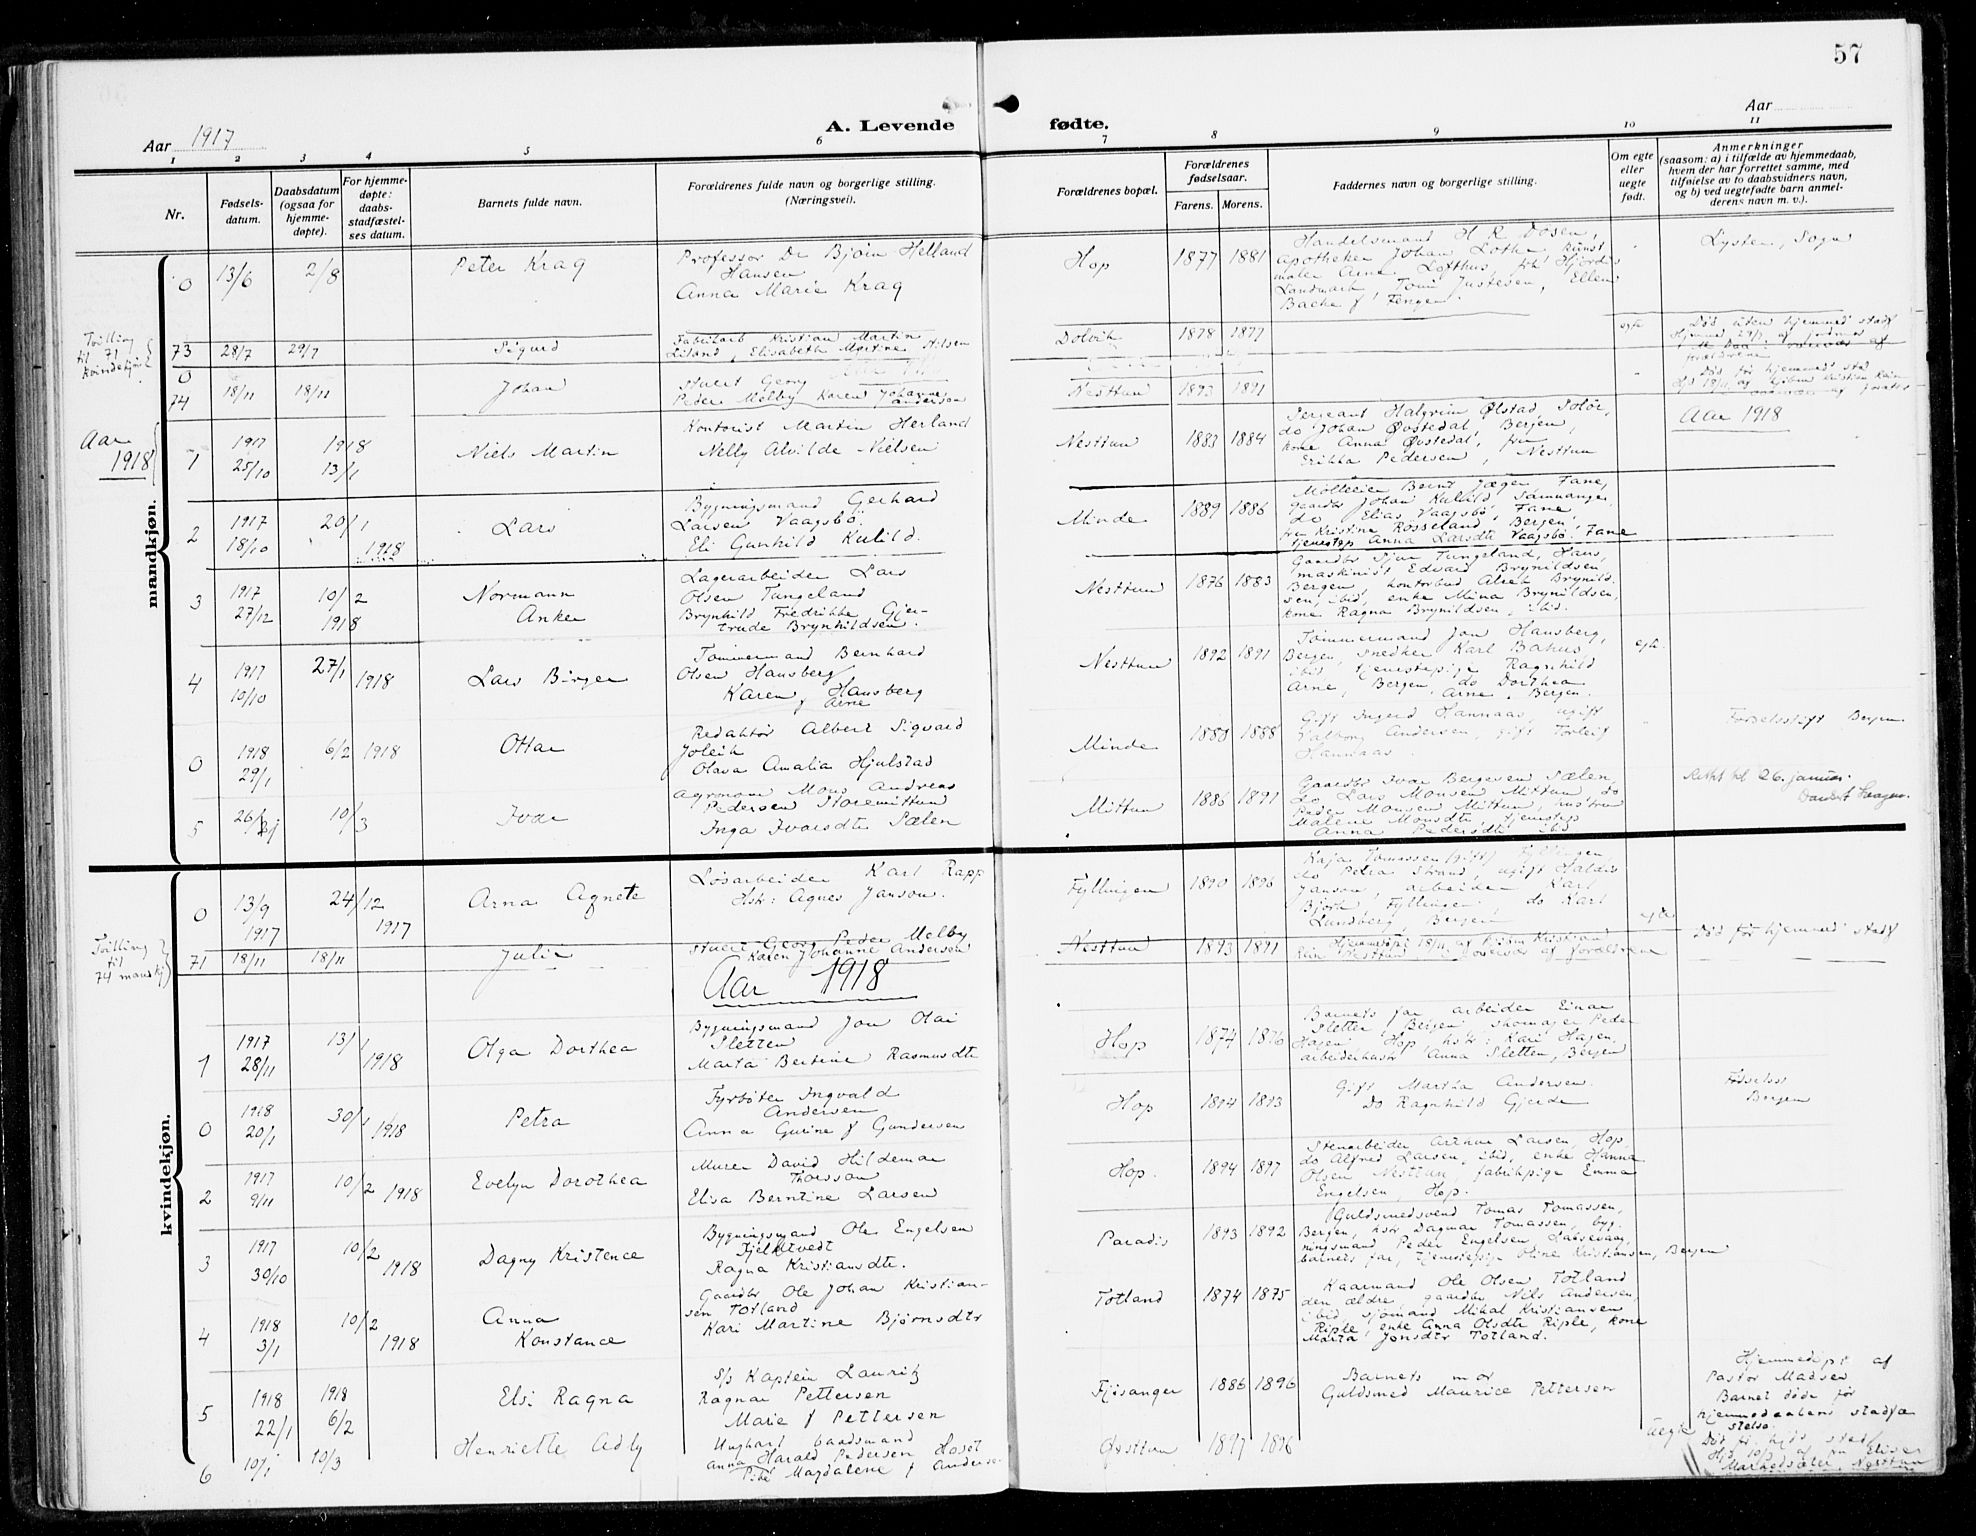 57
Aar 1917
A. Levende fødte.
Aar
1 2 3 4 5 6 7 8 9 10 11
Nr.
Fødselsdatum.
Daabsdatum (ogsaa for hjemmedøpte).
For hjemmedøpte: daabsstadfæstelses datum.
Barnets fulde navn.
Forældrenes fulde navn og borgerlige stilling. (Næringsvei).
Forældrenes bopæl.
Forældrenes fødselsaar.
Farens. Morens.
Faddernes navn og borgerlige stilling.
Om egte eller uegte født.
Anmerkninger (saasom: a) i tilfælde av hjemmedaab, hvem der har forrettet samme, med tilføielse av to daabsvidners navn, og b) ved uegtefødte barn anmelderens navn m. v.).
mandkjøn.
0 13/6 2/8 Peter Krag
Professor Dr Bjørn Helland
Hansen
Anna Marie Krag
Hop 1877 1881
Handelsmand H R Dosen,
Apotheker Johan Lothe, Kunst
maler Arne Lofthus, frk Hjørdis
Landmark, Toni Justesen, Ellen
Bache f. Fenger.
Lyster, Sogn
Tvilling til 71 kvindekjøn
73 28/7 29/7 Sigurd
Fabrikarb Kristian Martin
Liland, Elisabeth Martine Nilsen
Dolvik 1878 1877 egte
Død uden hjemmed stadf
0 74 18/11 18/11 Johan
Stuert Georg
Peder Melby Karen Johanne Andersen
Nesttun 1893 1891
Død før hjemmeds stad
Aar 1918
1 1917 25/10 1918 13/1 Niels Martin
Kontorist Martin Herland
Nelly Alvilde Nielsen
Nesttun 1883 1884
Sergeant Halgrim Ølstad, Solør,
do Johan Øvstedal, Bergen,
kone Anna Øvstedal, fru
Erikka Pedersen, Nesttun
Aar 1918
2 1917 18/10 20/1 1918 Lars
Bygningsmand Gerhard
Larsen Vaagsbø.
Eli Gunhild Kulild.
Minde 1889 1886
Mølleeier Bernt Jæger, Fane,
gaardbr Johan Kulild, Samnanger
do Elias Vaagsbø, Fane,
fru Kristine Rosseland, Bergen,
tjenestep Anna Larsdtr Vaagsbø. Fane
3 1917 27/12 10/2 1918 Normann
Anker
Lagerarbeider Lars
Olsen Tungeland
Brynhild Fredrikke Gjertrude Brynhildsen.
Nesttun 1876 1883
Gaardbr Sjur Tungeland, Haus,
maskinist Edvard Brynildsen
Bergen, kontorbud Alrek Brynildsen, ibid, enke Mina Brynildsen,
kone Ragna Brynildsen, ibid.
4 1917 10/10 27/1 1918 Lars Birger
Tømmermand Bernhard
Olsen Hansberg
Karen Hansberg
f Arne
Nesttun 1892 1891
Tømmermand Jon Hansberg,
Bergen, Snedker Karl Bahus,
ibid tjenestepige Ragnhild
Arne, Bergen, do Dorthea
Arne, Bergen.
egte
0 1918 29/1 6/2 1918 Ottar
Redaktør Albert Sigvard
Joleik
Olava Amalia Hjulstad
Minde 1883 1888
Gift Ingerd Hannaas, ugift
Valborg Andersen, gift Torleif
Hannaas
Fødselsstift Bergen
5 26/ 10/3 Ivar
Agronom Mons Andreas
Pedersen Storemittun
Inga Ivarsdtr Sælen
Mittun 1886 1891
Gaardbr Ivar Bergesen Sælen,
do Lars Monsen Mittun, do
Peder Monsen Mittun, hustru
Malene Monsdtr, tjenestep
Anna Pedersdtr ibid
Rettet til 26. januar.
kvindekjøn.
0 13/9 1917 24/12 1917 Arna Agnete
Løsarbeider Karl Rapp
Hstr: Agnes Janson.
Fyllingen 1890 1896
Kaja Tomassen (gift) Fyllingen,
do Petra Strand, ugift Haldis
Jansen, arbeider Karl
Bjørk Fyllingen, do Karl
Lundberg, Bergen
egte
Tvilling til 74 mandkj
71 18/11 18/11 Julie
Stuert Georg Peder Melby
Karen Johanne Andersen
Nesttun 1893 1891
Hjemmedøpt 18/11 af
Død før hjemmed stadf
Aar 1918
1 1917 28/11 13/1 1918 Olga Dorthea
Bygningsmand Jon Olai
Sletten
Marta Bertine Rasmusdtr
Hop 1874 1876
Barnets far arbeider Einar
Sletten, Bergen skomager Peder
Hagen Hop hstr: Kari Hagen,
arbeiderhustr Anna Sletten, Bergen
0 1918 20/1 30/1 1918 Petra
Fyrbøter Ingvald
Andersen
Anna Gurine f Gundersen
Hop 1894 1893
Gift Martha Andersen.
Do Ragnhild Gjerde
Fødselsst
Bergen
2 1917 9/11 10/2 1918 Evelyn Dorothea
Murer David Hildemar
Thorsson
Elisa Berntine Larsen
Hop. 1894 1897
Stenarbeider Arthur Larsen, Hop,
do Alfred Larsen, ibid, enke Hanna
Olsen Nesttun, fabrikpige Emma
Engelsen, Hop.
3 1917 30/10 10/2 1918 Dagny Kristence
Bygningsmand Ole Engelsen
Fjeldtvedt
Ragna Kristiansdtr.
Paradis 1893 1892
Guldsmedsvend Tomas Tomassen,
Bergen, hstr Dagmar Tomassen, bygningsmand Peder Engelsen, Laksevaag,
barnets far, tjenestepige Oline Kristiansen, Bergen
4 1918 3/1 10/2 1918 Anna
Konstance
Gaardbr Ole Johan Kristiansen Totland
Kari Martine Bjørnsdtr
Totland 1874 1875
Kaarmand Ole Olsen Totland
den ældre gaardbr Nils Andersen,
ibid, sjømand Mikal Kristiansen
Riple, enke Anna Olsdtr Riple, kone
Marta Jonsdtr Totland.
5 1918 22/1 1918 6/2 Elsi Ragna
S/s Kaptein Lauritz
Ragnar Pettersen
Marie f Pettersen
Fjøsanger 1886 1896
Barnets mor
Guldsmed Maurice Pettersen
Hjemmedøpt af
Pastor Madsen
Barnet døde før
hjemmedaabens stadfæstelse.
6 10/1 10/3 Henriette Adly
Ungkarl baadsmand
Anna Harald Pedersen Hoset
Pike Magdalene f Anderse
Øvsttun 1897 1896
Uegte
Død før hjds stadf
Hjd 10/3 af fru Elise
Markedsæter, Nesttun